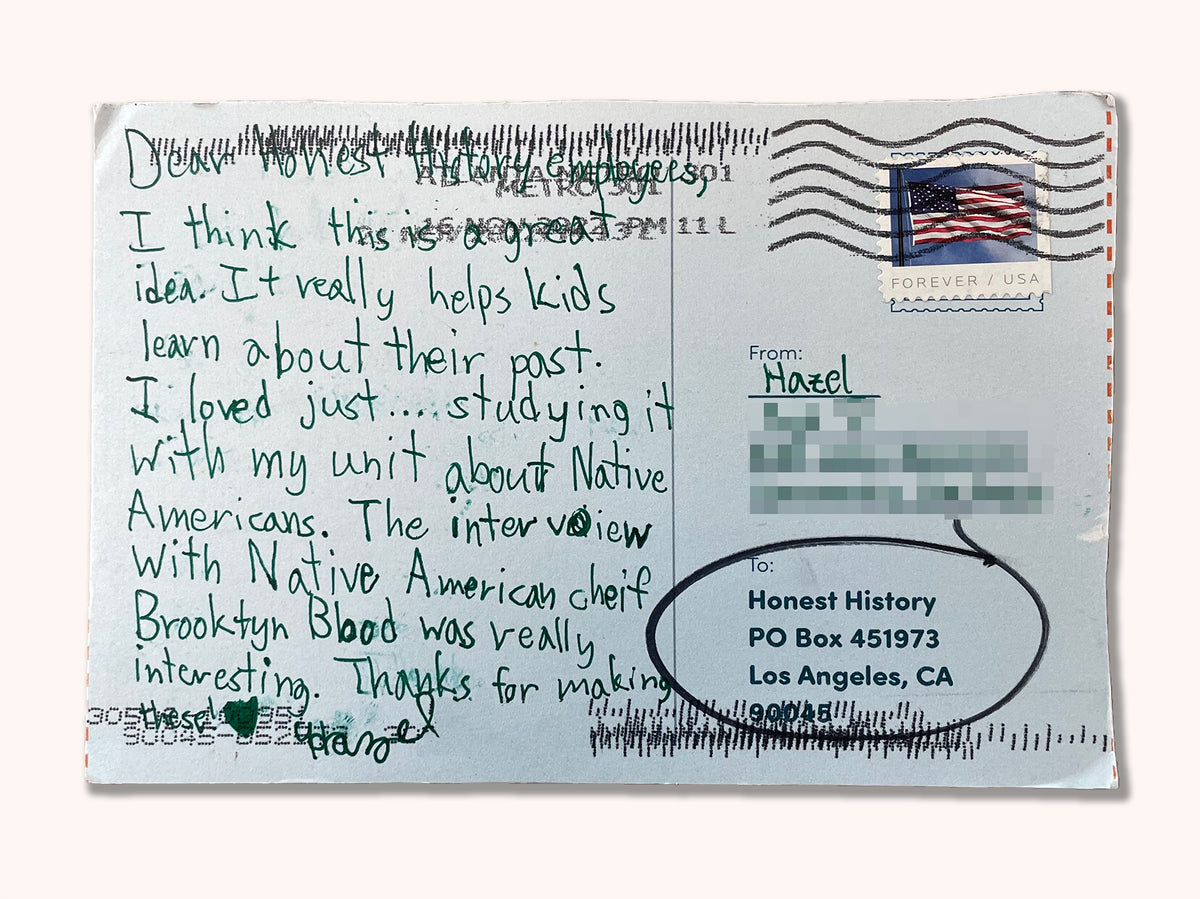 Dear Honest History employees,
I think this is a great
idea. It really helps kids
learn about their past.
I loved just.... studying it
with my unit about Native
Americans. The interview
with Native American cheif
Brooktyn Blood was really
interesting. Thanks for making
these! Hazel
FOREVER / USA
From:
Hazel
To:
Honest History
PO Box 451973
Los Angeles, CA
90045